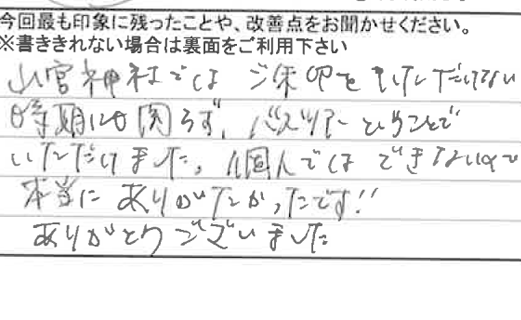 今回最も印象に残ったことや、改善点をお聞かせください。
※書ききれない場合は裏面をご利用下さい
山宮神社では ご朱印をいただけない
時期にも関らず、バスツアーということで
いただけました。個人ではできないので
本当に ありがたかったです!!
ありがとうございました